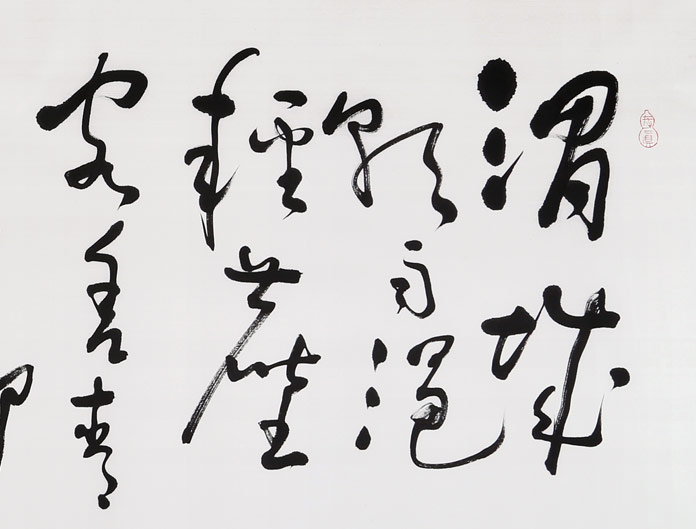 渭城
朝雨浥
輕塵
客舍青